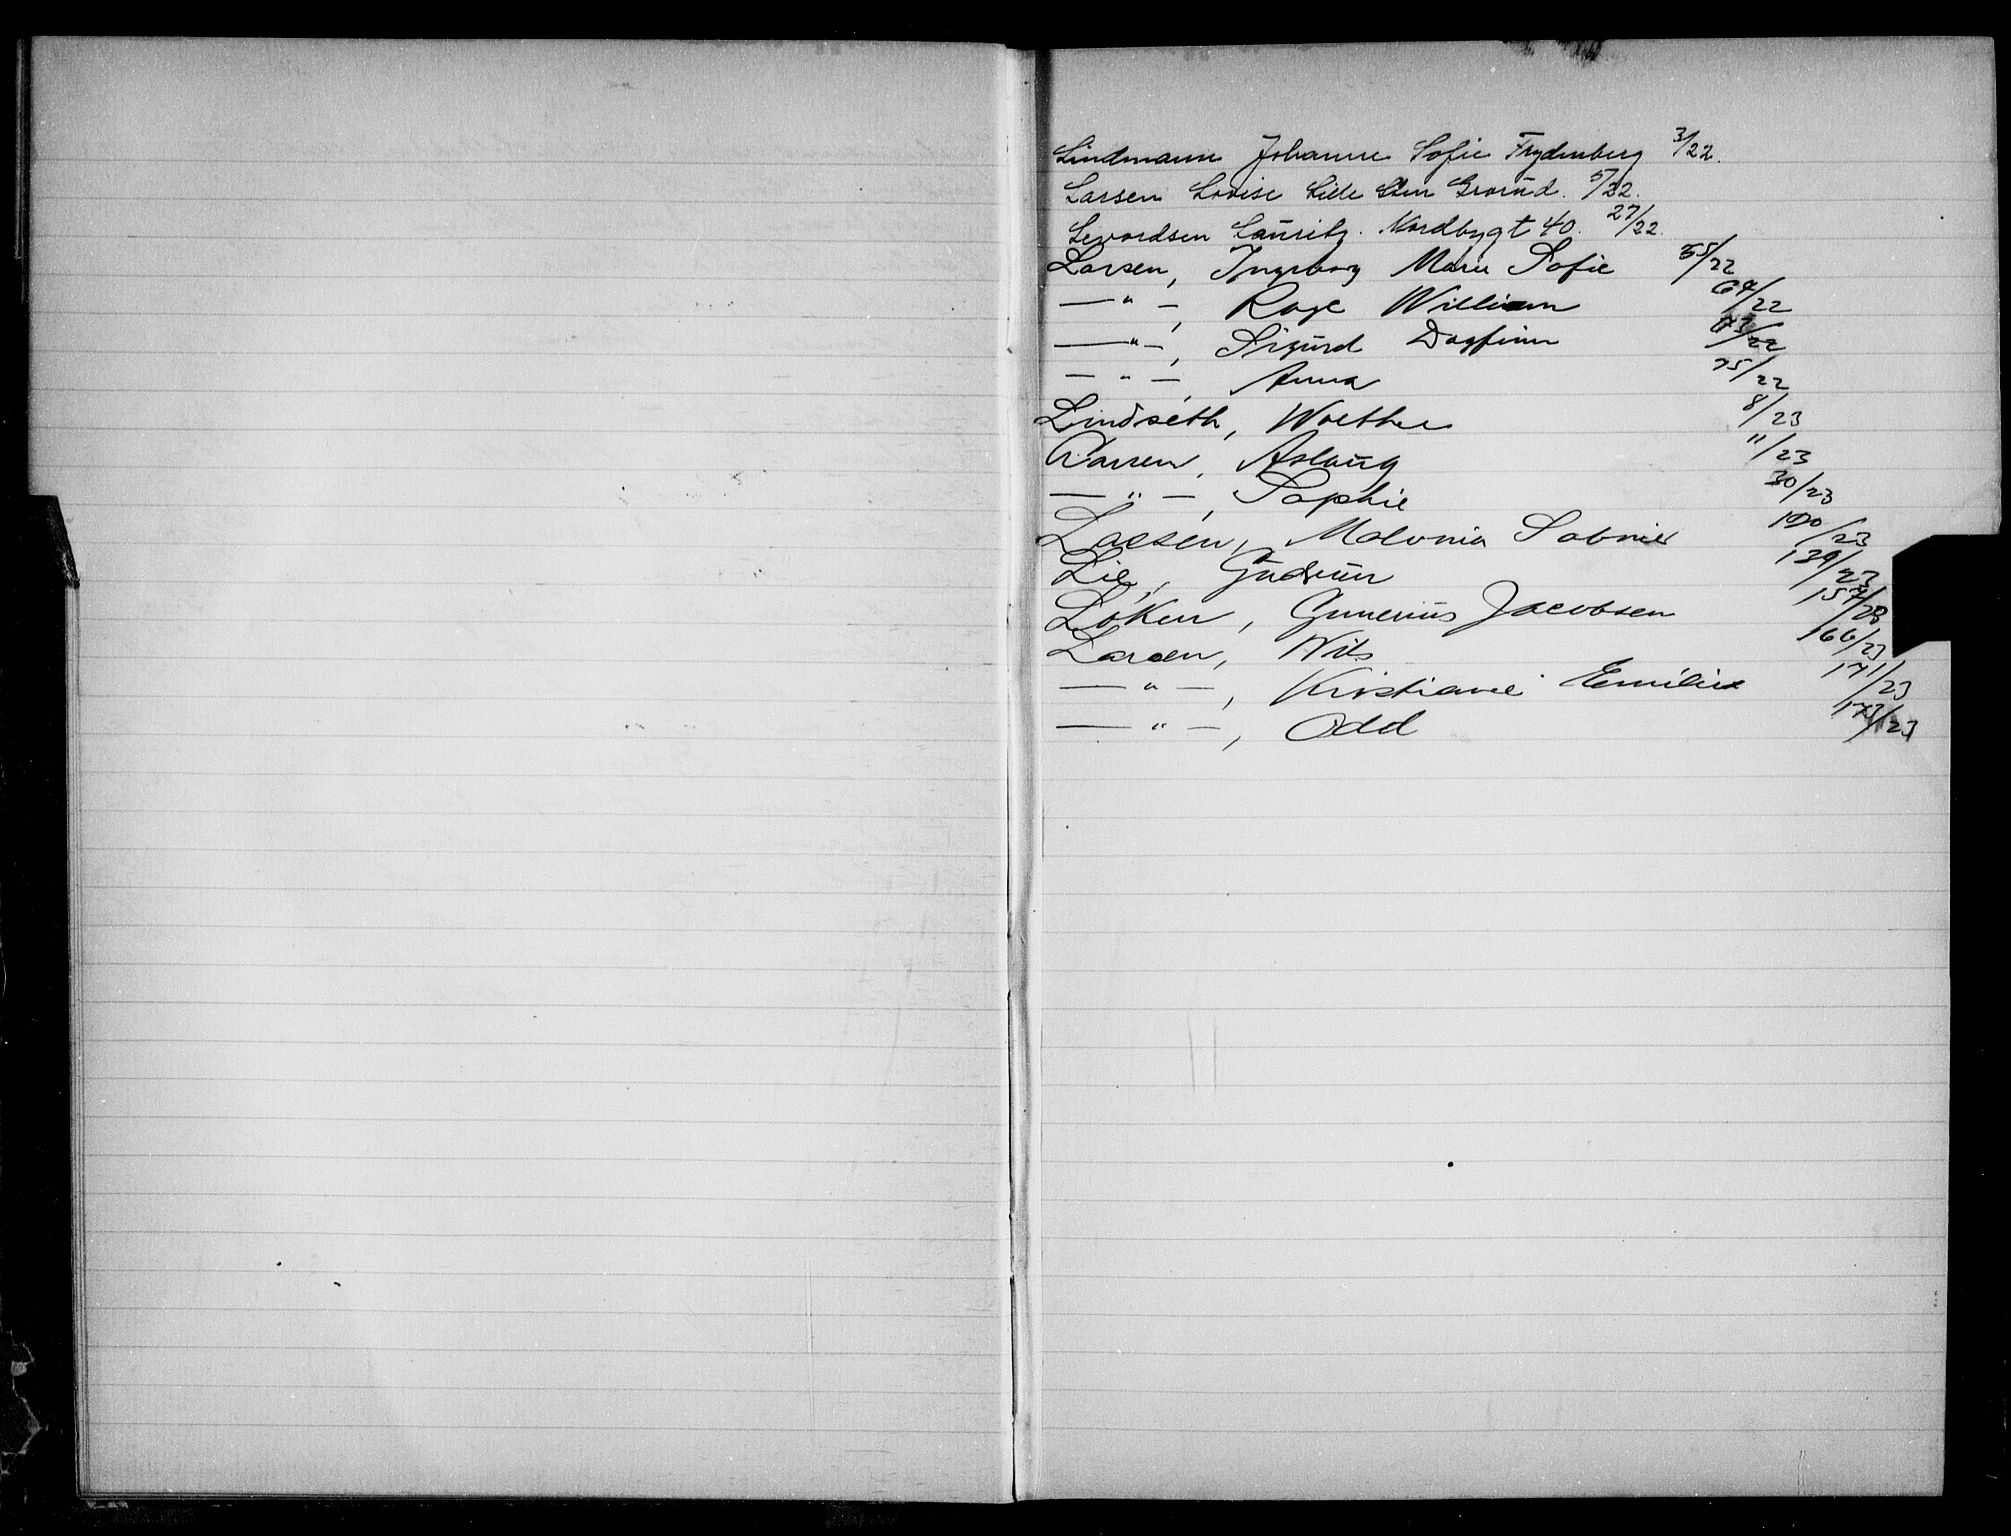 Lindmann Johanne Sofie Frydenberg 3/22.
Larsen Lovise Lille Sten Grorud. 5/22.
Levordsen Lauritz. Nordbygt 40. 27/22.
Larsen, Ingeborg Marie Sofie 55/22
— " —, Roye William 64/22
— " —, Sigurd Dagfinn 73/22
— " —, Anna 75/22
Lindseth, Walther 8/23
Larsen, Aslaug "/23
— " —, Sophie 30/23
Larsen, Malonia Sabnie 190/23
Lie, Gudrun 139/23
Løken, Gunerius Jacobsen 157/23
Larsen, Nils 166/23
— " —, Kristiane Emilie 171/23
— " —, Odd 173/23